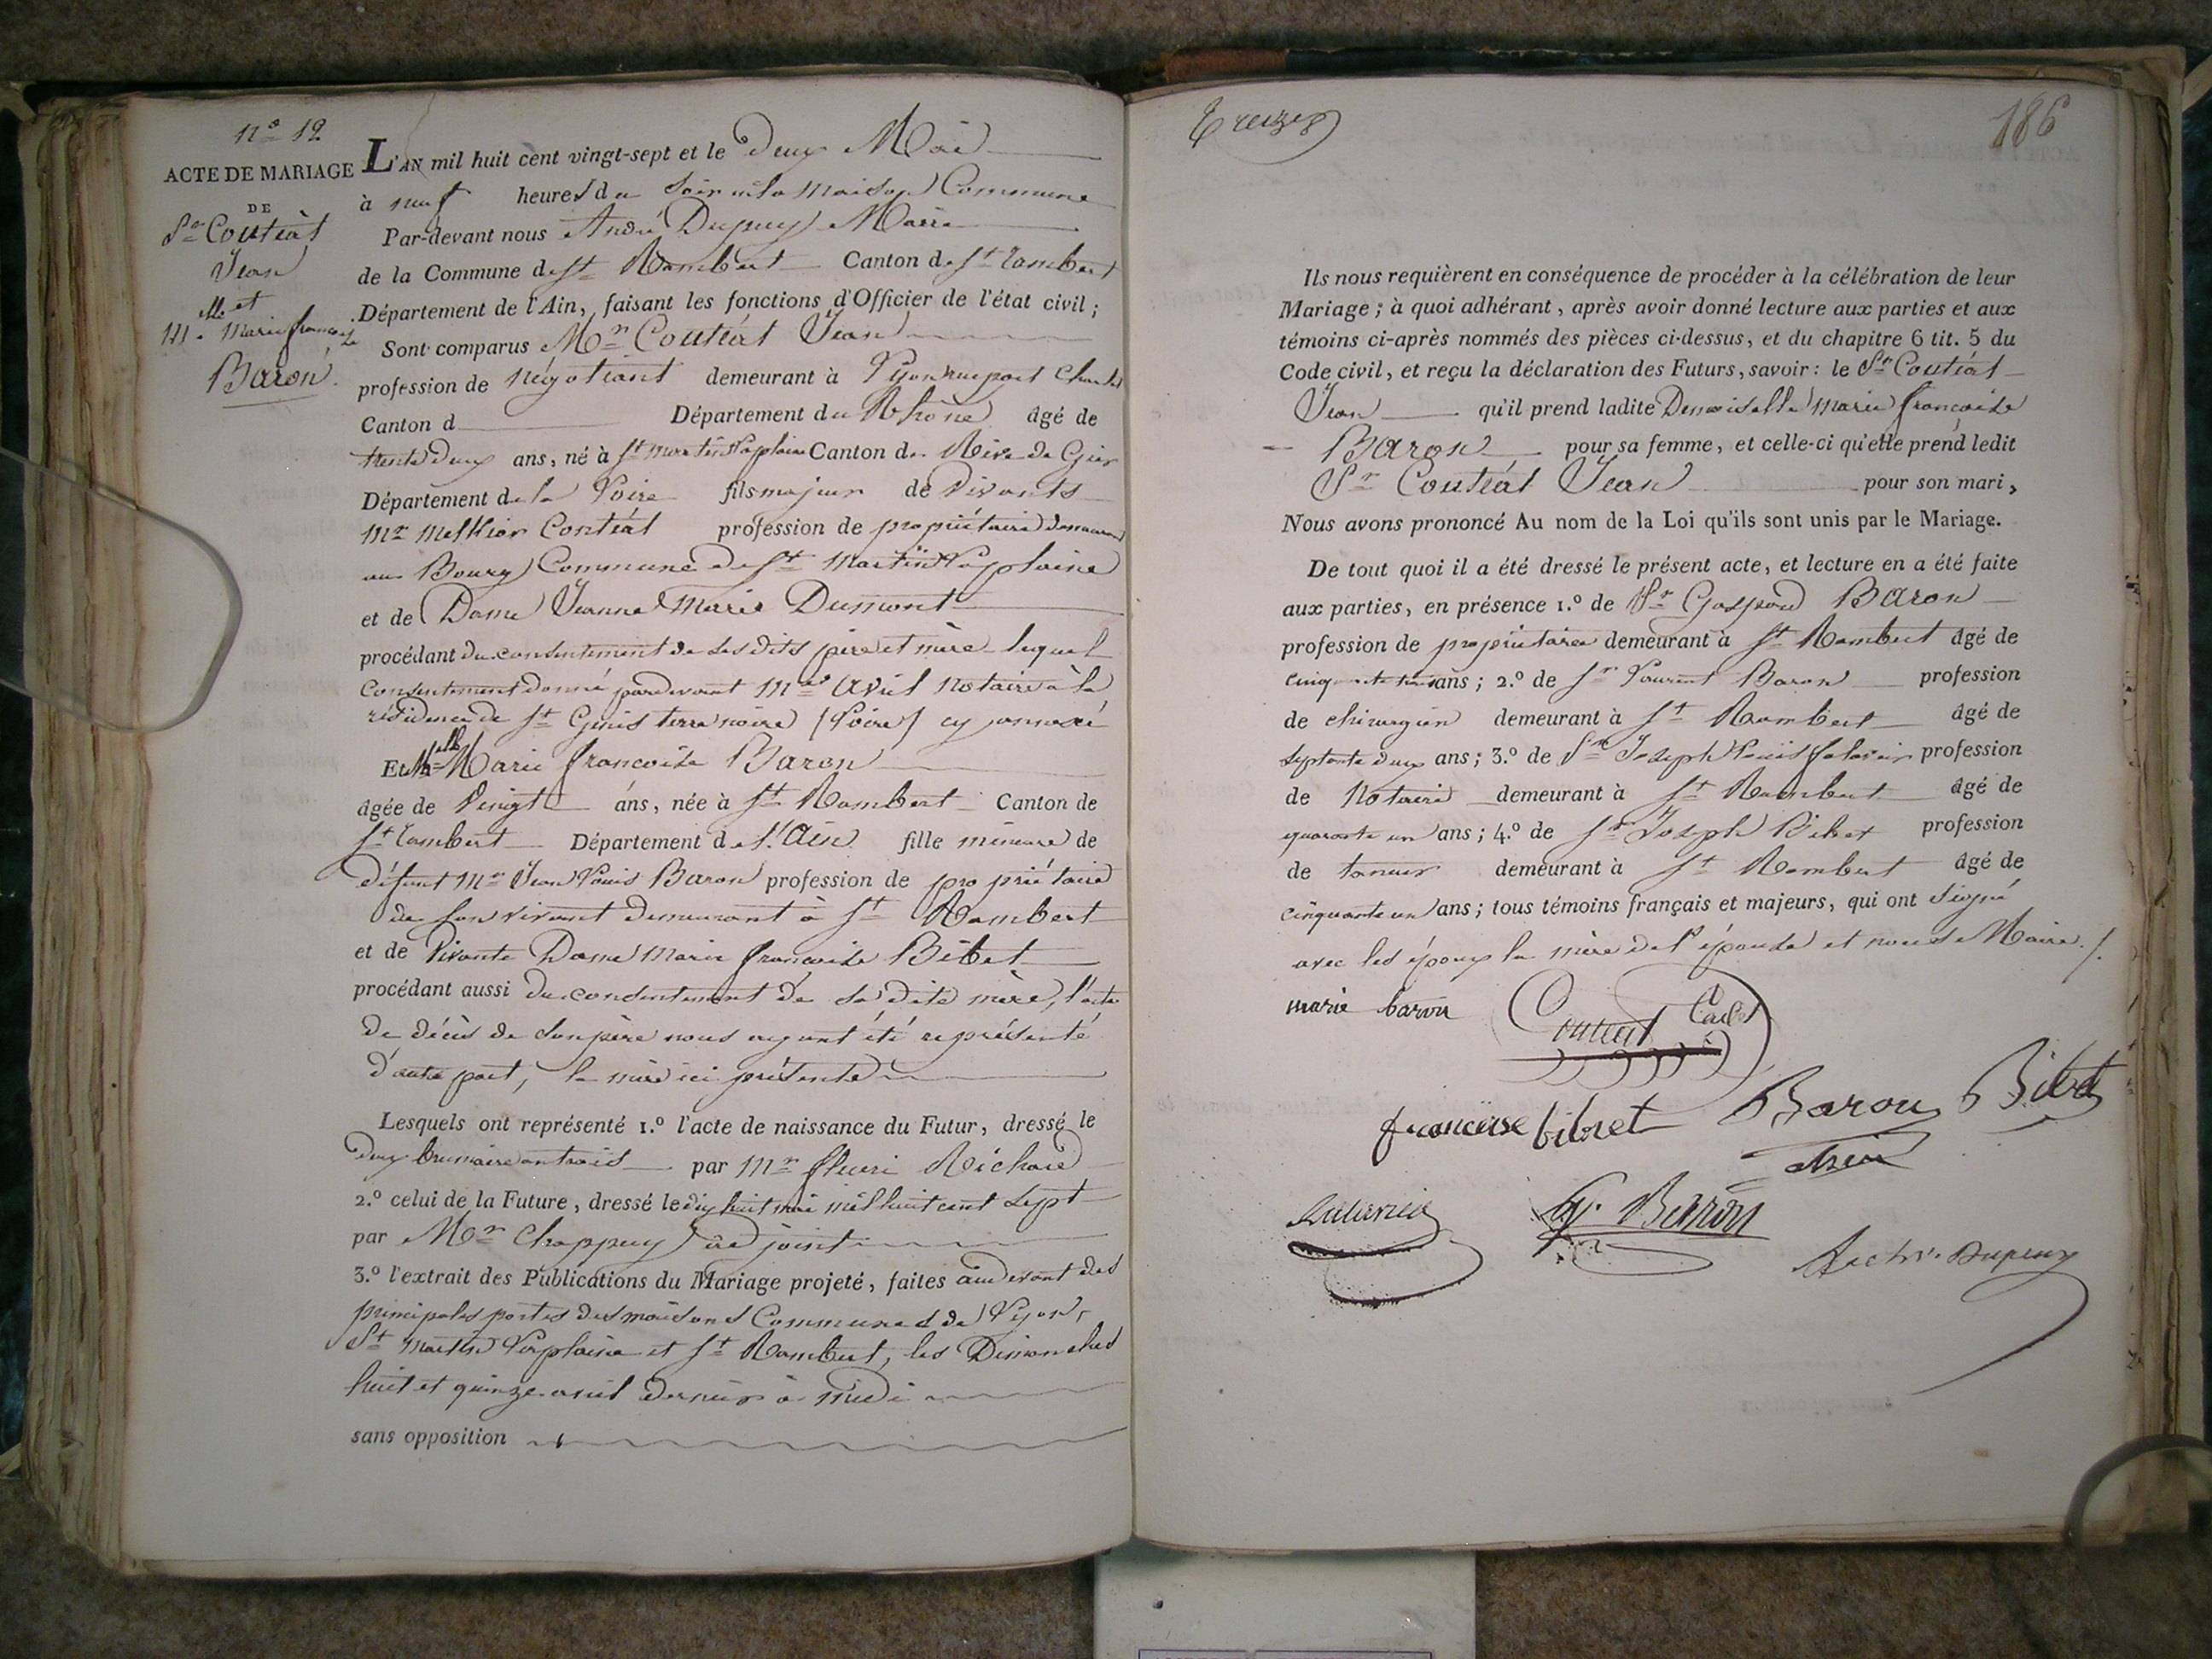 n.o 12
ACTE DE MARIAGE
DE
Sr Coutiàt
Jean
et
Mlle Marie francoise
Baron.
L'AN mil huit cent vingt-sept et le deux Mai
à neuf heures du soir en la maison Commune
Par-devant nous André Dupuy Maire
de la Commune de St Rambert Canton de St rambert
Département de l'Ain, faisant les fonctions d'Officier de l'état civil;
Sont comparus Mr Coutiàt Jean
profession de négotiant demeurant à Lyon rue port Charlet
Canton d Département du Rhône âgé de
trente deux ans, né à St martin Laplaine Canton de Rive de Gier
Département de la Loire fils majeur de vivants
Mr Melkior Contiàt profession de propriétaire demeurant
au Bourg Commune de St Martin Laplaine
et de Dame Jeanne Marie Dumont
procédant du consentement de ses dits père et mère lequel
Consentement donné pardevant Mre Avril Notaire à la
résidence de St Genis terre noire (Loire) cy annexé
Et Mlle Marie francoise Baron
âgée de vingt ans, née à St Rambert Canton de
St rambert Département de l'Ain fille mineure de
défunt Mr Jean Louis Baron profession de propriétaire
de son vivant demeurant à St Rambert
et de vivante Dame Marie francoise Bibet
procédant aussi du consentement de sa dite mère, l'acte
de décès de son père nous ayant été représenté
d'autre part, la mère ici présente
Lesquels ont représenté 1.o l'acte de naissance du Futur, dressé le
deux brumaire an trois par Mr fleuri Richard
2.o celui de la Future, dressé le dix huit mai mil huit cent sept
par Mr Chappuy adjoint
3.o l'extrait des Publications du Mariage projeté, faites audevant des
principales portes des maisons Communes de Lyon,
St Martin Laplaine et St Rambert, les Dimanches
huit et quinze avril dernier à midi
sans opposition
Treize
186
Ils nous requièrent en conséquence de procéder à la célébration de leur
Mariage; à quoi adhérant, après avoir donné lecture aux parties et aux
témoins ci-après nommés des pièces ci-dessus, et du chapitre 6 tit. 5 du
Code civil, et reçu la déclaration des Futurs, savoir: le Sr Coutiàt
Jean qu'il prend ladite Demoiselle Marie francoise
Baron pour sa femme, et celle-ci qu'elle prend ledit
Sr Coutiàt Jean pour son mari,
Nous avons prononcé Au nom de la Loi qu'ils sont unis par le Mariage.
De tout quoi il a été dressé le présent acte, et lecture en a été faite
aux parties, en présence 1.o de Sr Gaspard Baron
profession de propriétaire demeurant à St Rambert âgé de
cinquante trois ans; 2.o de Sr Laurent Baron profession
de chirurgien demeurant à St Rambert âgé de
septante deux ans; 3.o de Sr Joseph Louis profession
de Notaire demeurant à St Rambert âgé de
quarante un ans; 4.o de Sr Joseph Bibet profession
de taneur demeurant à St Rambert âgé de
cinquante un ans; tous témoins français et majeurs, qui ont signé
avec les époux la mère de l'épouse et nous Maire./.
marie baron Coutiat Cadet
francoise bibet Baron Bibet
G. Baron
Dupuy